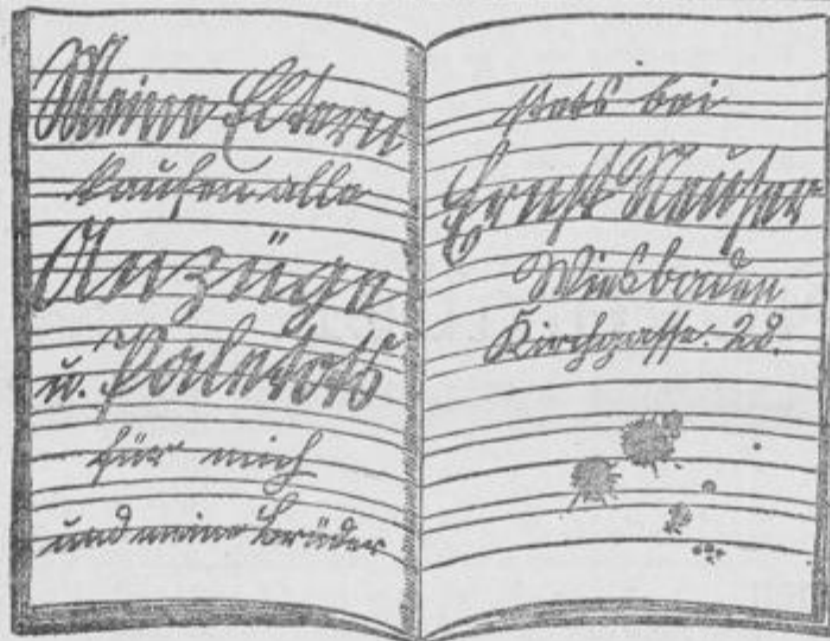 Meine Eltern
kaufen alle
Anzüge
u. Paletots
für mich
und meine Brüder
stets bei
Ernst Neuser
Wiesbaden
Kirchgasse. 28.